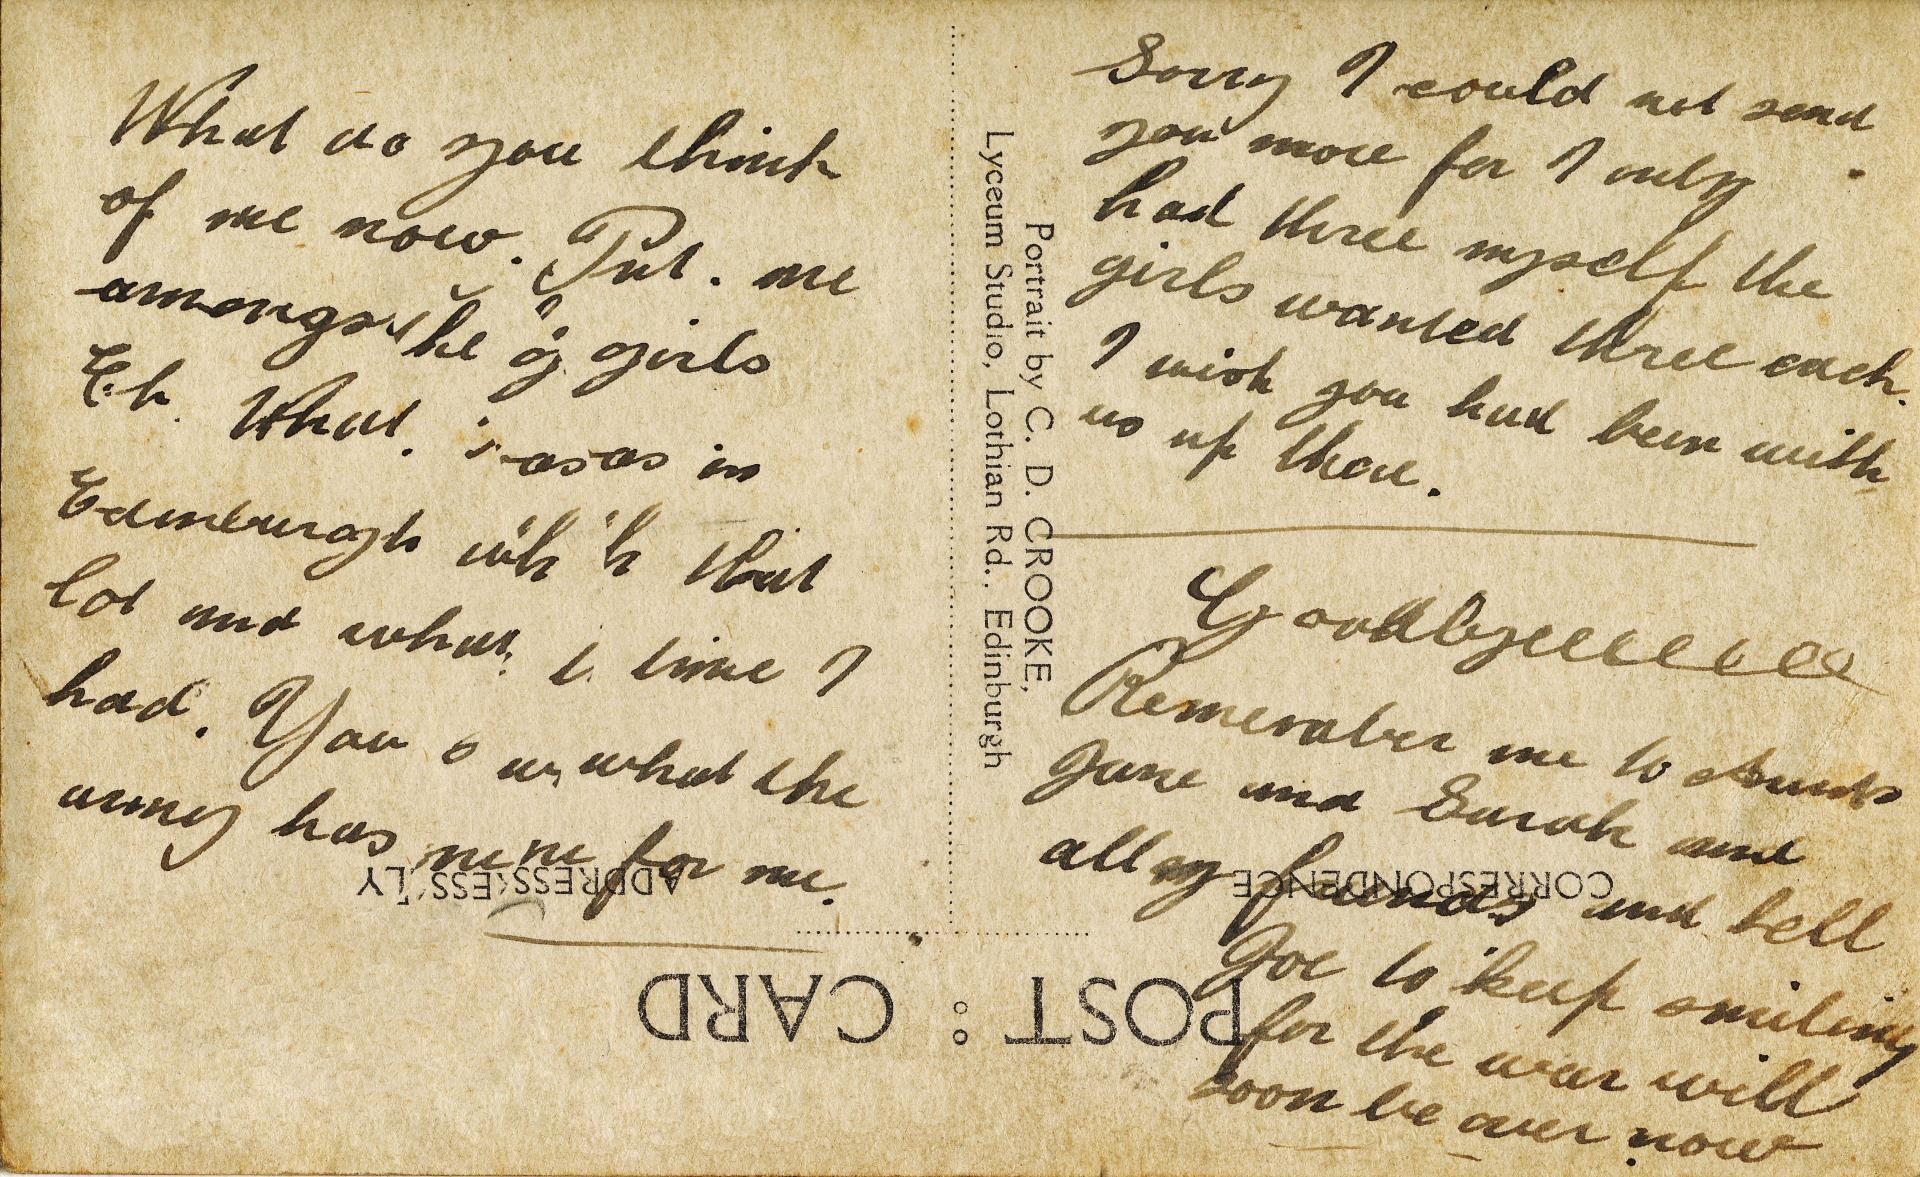 What do you think
of me now. Put. me
amongst the girls
Eh. What. was in
Edinburgh with that
lot and what a time I
had. You what the
army has for me.
Sorry I could not send
you more for I only
had three myself the
girls wanted three each.
I wish you had been with
us up there.
Goodbyeeeeeeee
Remember me to Aunts
Jane and Sarah and
all my friends and tell
Joe to keep smiling
for the war will
soon be over now
Portrait by C. D. CROOKE,
Lyceum Studio, Lothian Rd., Edinburgh
POST : CARD
CORRESPONDENCE
ADDRESS